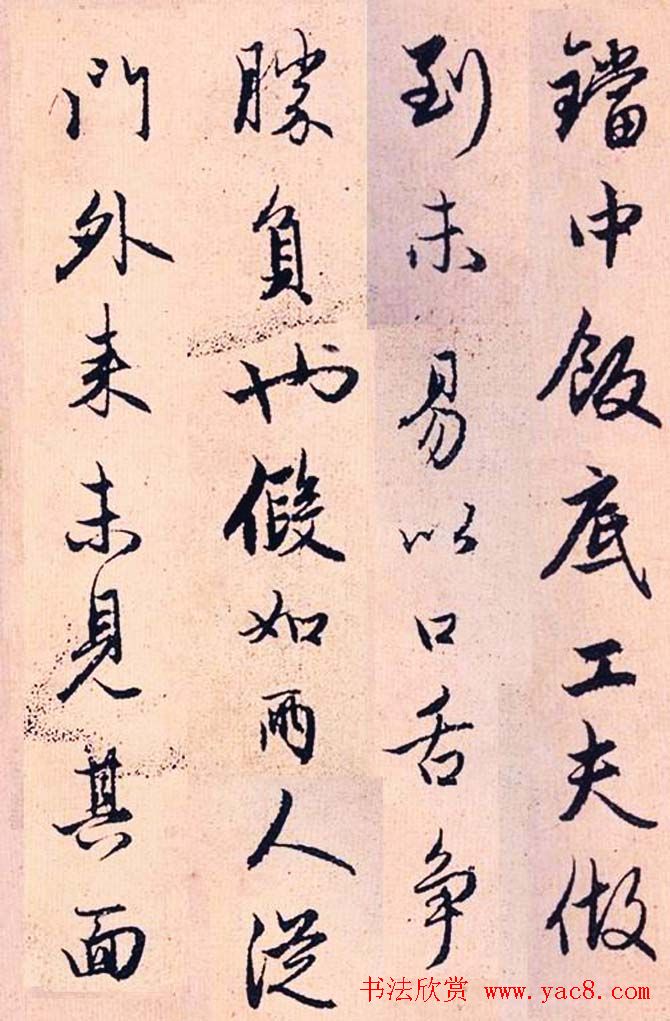 鐺中飯底工夫做
到未易以口舌争
勝負也假如兩人從
門外来未見其面
书法欣赏 www.yac8.com